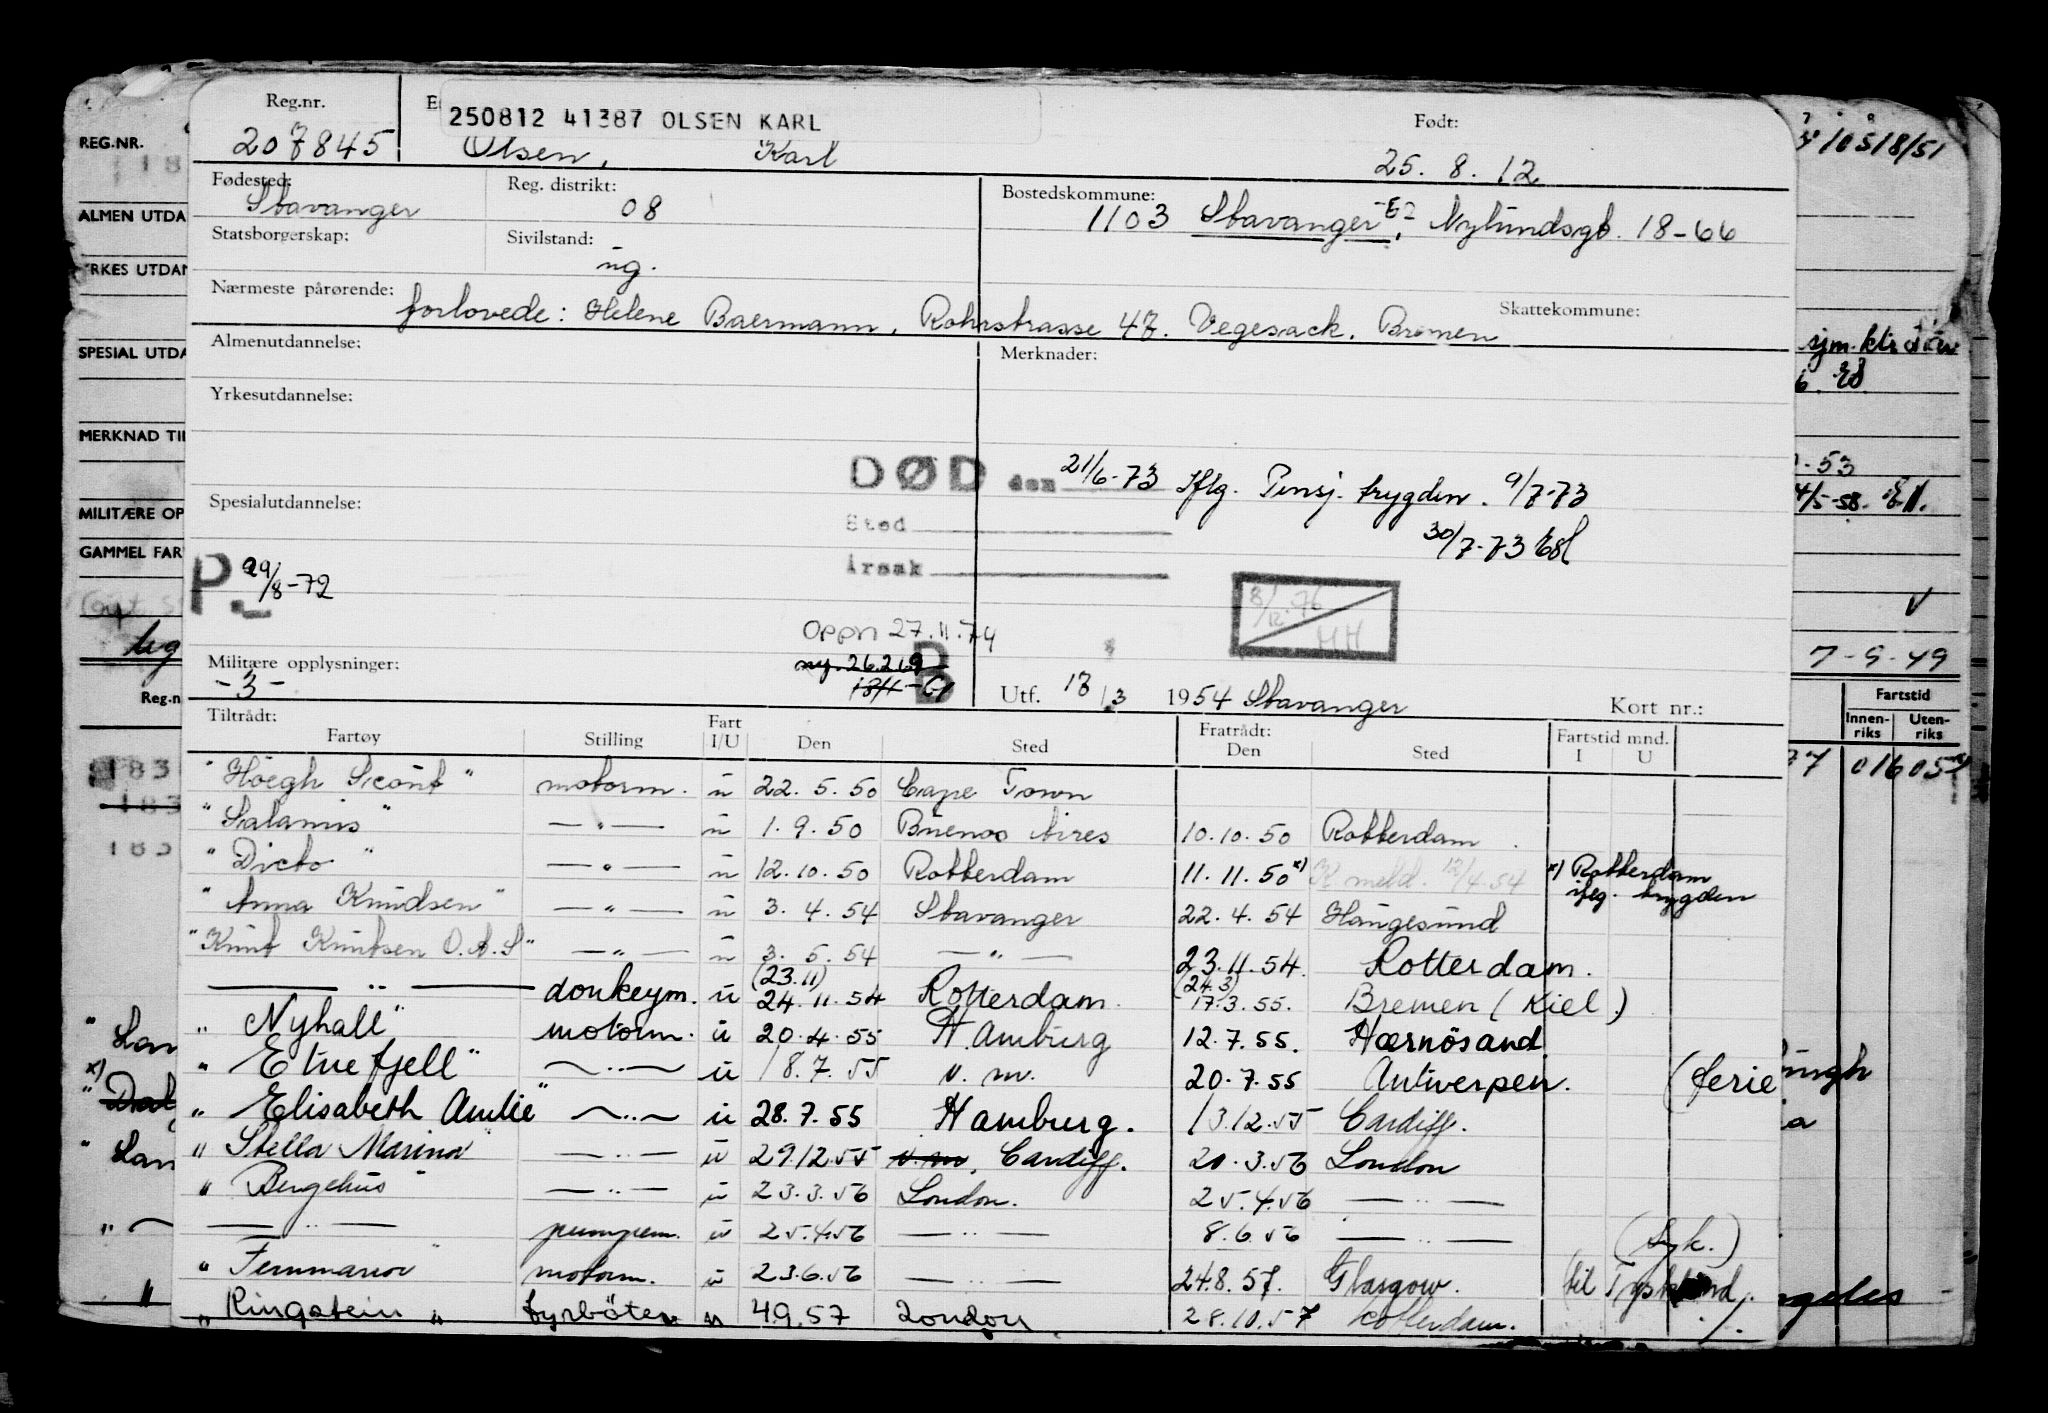 Reg.nr. 250812 41387 OLSEN KARL Født:
207845 Olsen, Karl 25. 8. 12
Fødested: Stavanger Reg. distrikt: 08 Bostedskommune: 1103 Stavanger, Nylundsgt. 18-66
Statsborgerskap: Sivilstand: ug.
Nærmeste pårørende: forlovede: Helene Baermann, Rohrstrasse 47. Vegesack. Bremen Skattekommune:
Almenutdannelse: Merknader:
Yrkesutdannelse:
DØD den 21/6-73 Iflg. Pensj. trygden. 9/7-73
Spesialutdannelse: Sted
30/7-73
Årsak
P. 29/8-72
8/12-76
MH
Oppn 27.11.74
ny. 26.2.69
Militære opplysninger: -3-
Utf. 18/3 1954 Stavanger Kort nr.:
Tiltrådt: Fratrådt: Fartstid mnd.
Fartøy Stilling Fart I/U Den Sted Den Sted I U
"Høegh Scout" motorm. u 22. 5. 50 Cape Town
"Salamis" —"— u 1. 9. 50 Buenos Aires 10.10.50 Rotterdam
"Dicto" —"— u 12. 10. 50 Rotterdam 11. 11. 50 x) K. meld. 12/4.54 x) Rotterdam iflg. trygden
"Anna Knudsen" —"— u 3. 4. 54 Stavanger 22. 4. 54 Haugesund
"Knut Knutsen O.A.S" —"— u 3. 5. 54 —"— 23.11.54. Rotterdam.
—"— donkeym. u (23.11) 24.11.54 Rotterdam. (24.3) 17.3.55. Bremen (Kiel)
"Nyhall" motorm. u 20.4.55 Hamburg 12.7.55. Hærnösand
"Etnefjell" —"— u 18.7.55 v. m. 20.7.55 Antwerpen. (ferie
"Elisabeth Amlie" —"— u 28.7.55 Hamburg. 13.12.55 Cardiff.
"Stella Marina" —"— u 29.12.55 v.m, Cardiff. 20.3.56 London
"Bergehus —"— u 23.3.56 London. 25.4.56 —"—
—"— pumpem. u 25.4.56 —"— 8.6.56 —"— (syk.)
"Fernmanor" motorm. u 23.6.56 —"— 24.8.57. Glasgow. (til Tyskland
"Ringstein" fyrbøter u 4.9.57 London 28.10.57 Rotterdam.
REG.NR.
ALMEN UTDA
YRKES UTDAN
SPESIAL UTDA
MERKNAD TIL
MILITÆRE OP
GAMMEL FAR
Reg.n
183
183
183
10518/51
sjm. ktr.
-53
4/5-58.
V
7-9-49
Fartstid
Innen-riks Uten-riks
77 016 05